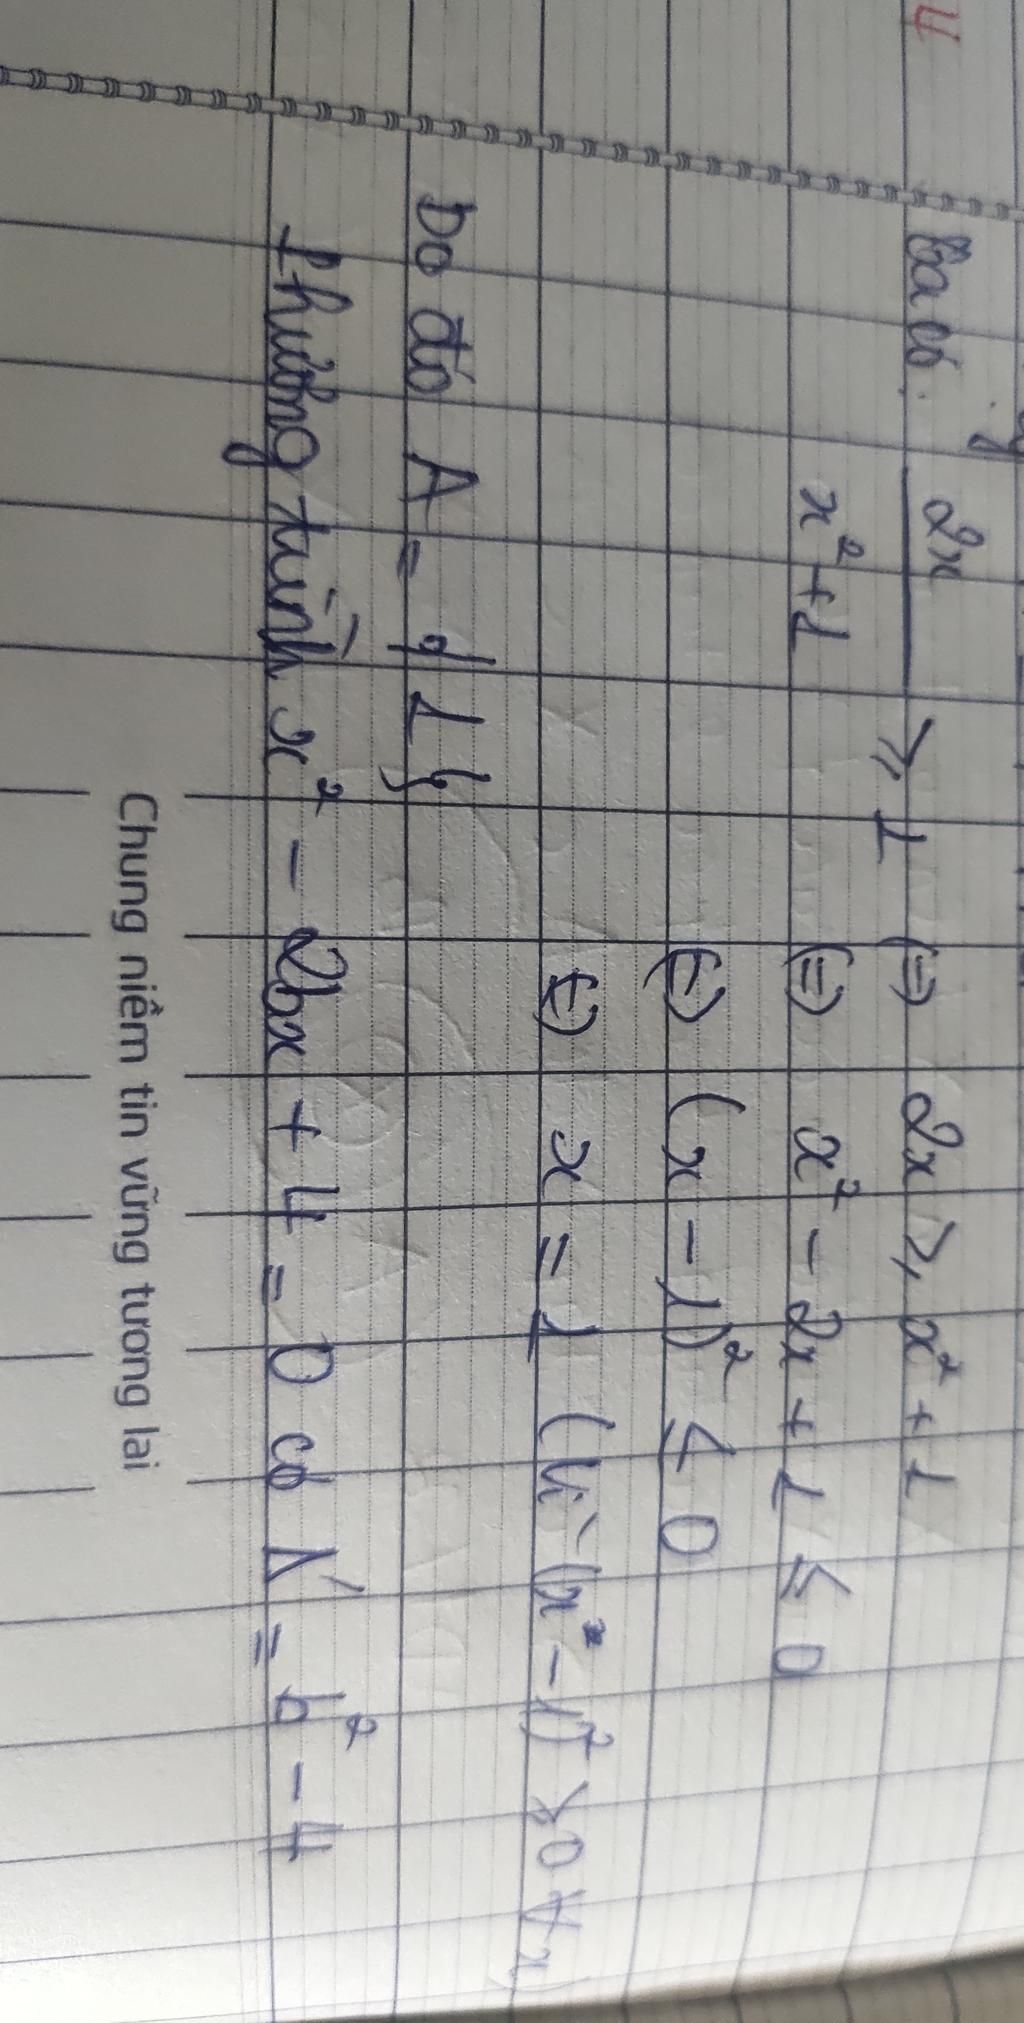 4
Ta có. 2x / x² + 1 ⩾ 1 (=) 2x ⩾ x² + 1
(=) x² - 2x + 1 ≤ 0
(=) (x - 1)² ≤ 0
(=) x = 1 (Vì (x² - 1)² ⩾ 0 ∀x)
Do đó A = {1}
Phương trình x² - 2bx + 4 = 0 có Δ' = b² - 4
Chung niềm tin vững tương lai